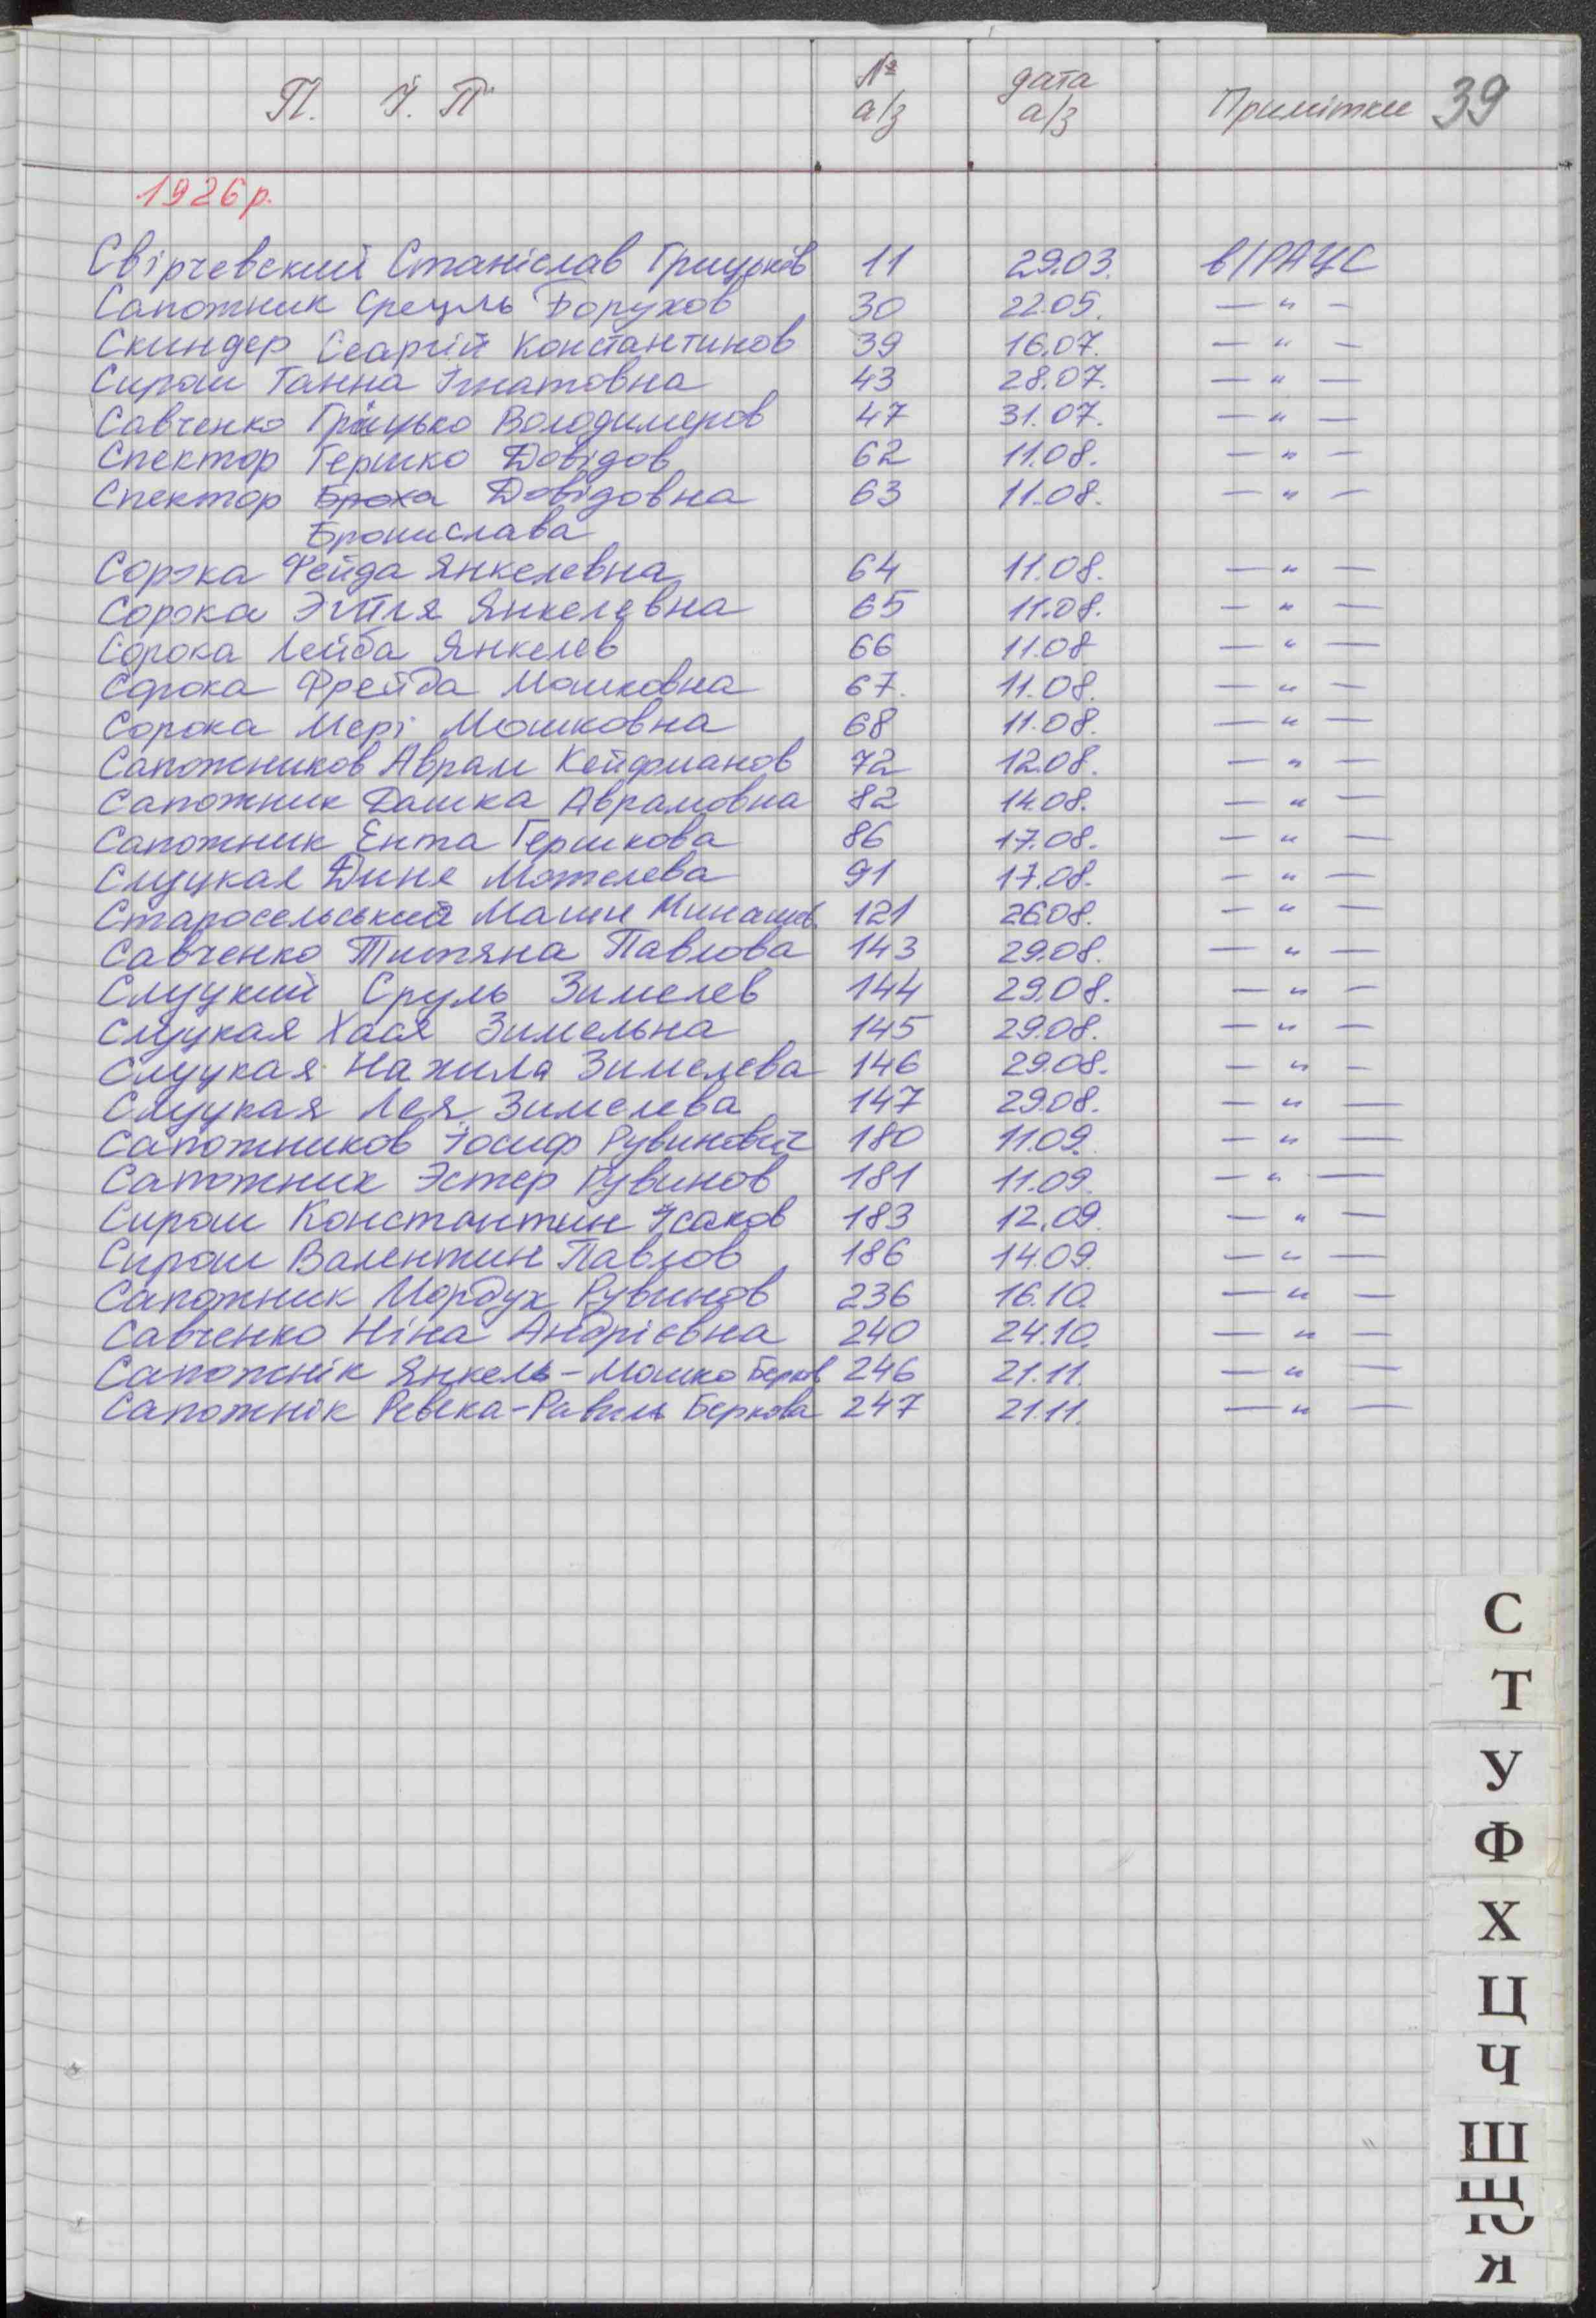 П. І. П №
а/з дата
а/з Примітки 39
1926р.
Свірчевский Станіслав Грицьків 11 29.03. в/РАЦС
Сапожник Срецль Борухов 30 22.05. — " —
Скиндер Сеаргій Константинов 39 16.07. — " —
Сираш Ганна Ігнатовна 43 28.07. — " —
Савченко Гріцько Володимеров 47 31.07. — " —
Спектор Гершко Довідов 62 11.08. — " —
Спектор Броха Довідовна 63 11.08. — " —
Бронислава
Сорока Фейда Янкелевна 64 11.08. — " —
Сорока Этля Янкелевна 65 11.08. — " —
Сорока Лейба Янкелев 66 11.08 — " —
Сорока Фрейда Мошковна 67. 11.08. — " —
Сорока Мері Мошковна 68 11.08. — " —
Сапожников Аврам Кейфманов 72 12.08. — " —
Сапожник Дашка Аврамовна 82 14.08. — " —
Сапожник Ента Гершкова 86 17.08. — " —
Слуцкая Дине Мотелева 91 17.08. — " —
Старосельський Маши Минашев. 121 26.08. — " —
Савченко Титяна Павлова 143 29.08. — " —
Слуцкий Сруль Зимелев 144 29.08. — " —
Слуцкая Хася Зимельна 145 29.08. — " —
Слуцкая Нахила Зимелева 146 29.08. — " —
Слуцкая Лея Зимелева 147 29.08. — " —
Сапожников Іосиф Рувинович 180 11.09. — " —
Сапожник Эстер Рувинов 181 11.09. — " —
Сираш Константин Ісаков 183 12.09. — " —
Сираш Валентин Павлов 186 14.09. — " —
Сапожник Мордух Рувинов 236 16.10. — " —
Савченко Ніна Андрієвна 240 24.10. — " —
Сапожнік Янкель-Мошко Берков 246 21.11. — " —
Сапожнік Ревека-Рахиль Беркова 247 21.11. — " —
С
Т
У
Ф
Х
Ц
Ч
Ш
Щ
Ю
Я